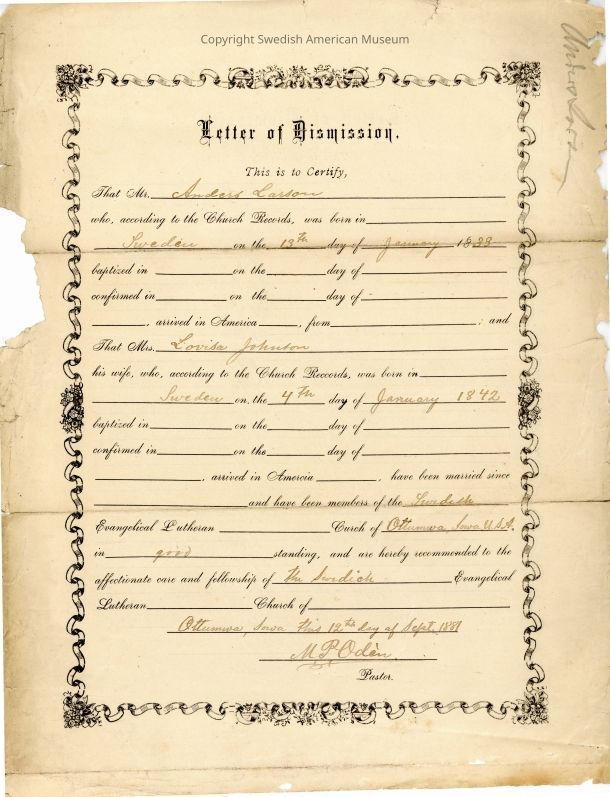 Copyright Swedish American Museum
Letter of Dismission.
This is to Certify,
That Mr. Anders Larson
who, according to the Church Records, was born in
Sweden on the 13th day of January 1838
baptized in on the day of
confirmed in on the day of
, arrived in America , from ; and
That Mrs. Lovisa Johnson
his wife, who, according to the Church Reccords, was born in
Sweden on the 4th day of January 1842
baptized in on the day of
confirmed in on the day of
, arrived in Amercia , have been married since
and have been members of the Swedish
Evangelical Lutheran Curch of Ottumwa, Iowa U.S.A.
in good standing, and are hereby recommended to the
affectionate care and fellowship of the Swedich Evangelical
Lutheran Church of
Ottumwa, Iowa this 12th day of Sept. 1881
M.P. Odèn.
Pastor.